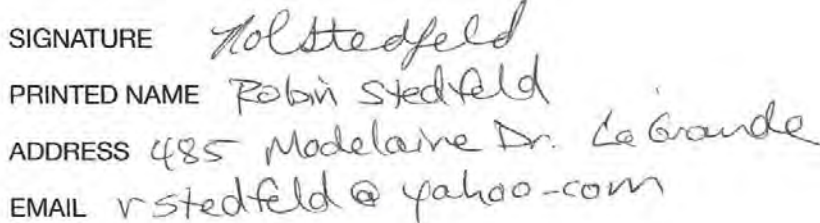 SIGNATURE Rolstedfeld
PRINTED NAME Robin Stedfeld
ADDRESS 485 Modelaine Dr. La Grande
EMAIL rstedfeld@yahoo.com